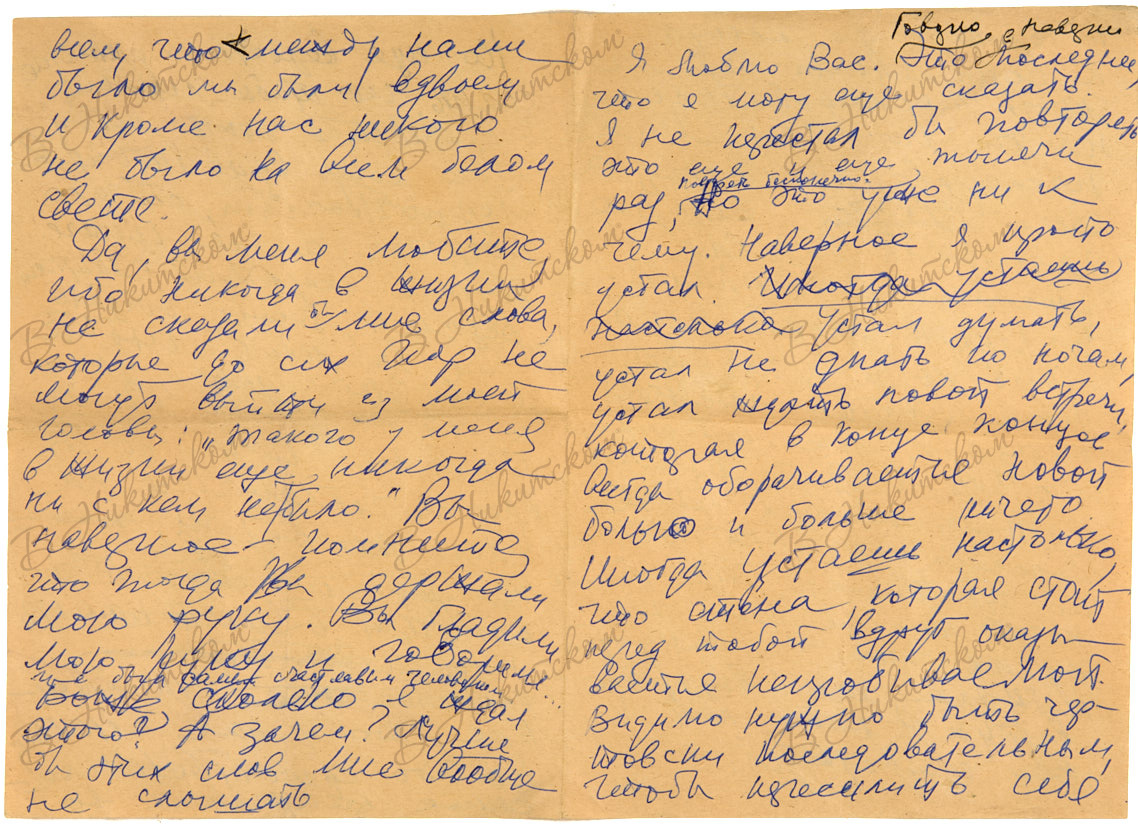 всем, что между нами
было мы были вдвоем
и кроме нас никого
не было на всем белом
свете.
Да, вы меня любите
ибо никогда в жизни
не сказали бы мне слова,
которые до сих пор не
могут выйти из моей
головы: "такого у меня
в жизни еще никогда
ни с кем не было." Вы
наверное помните,
что тогда Вы держали
мою руку. Вы гладили
мою руку и говорили
был самым счастливым человеком.
Боже сколько я ждал
этого? А зачем? Лучше
бы этих слов мне вообще
не слышать
Я люблю Вас. Это последнее,
что я могу еще сказать.
Я не перестал бы повторять
это еще и еще тысячи
бесконечно.
раз, но это уже ни к
чему. Наверное я просто
устал. Иногда устаешь
настолько Устал думать,
устал не спать по ночам,
устал ждать новой встречи,
которая в конце концов
всегда оборачивается новой
болью и больше ничего
Иногда устаешь настолько,
что стена, которая стоит
перед тобой вдруг оказы-
вается непробиваемой.
Видимо нужно быть чер-
товски последовательным,
чтобы пересилить себя
В Никитском